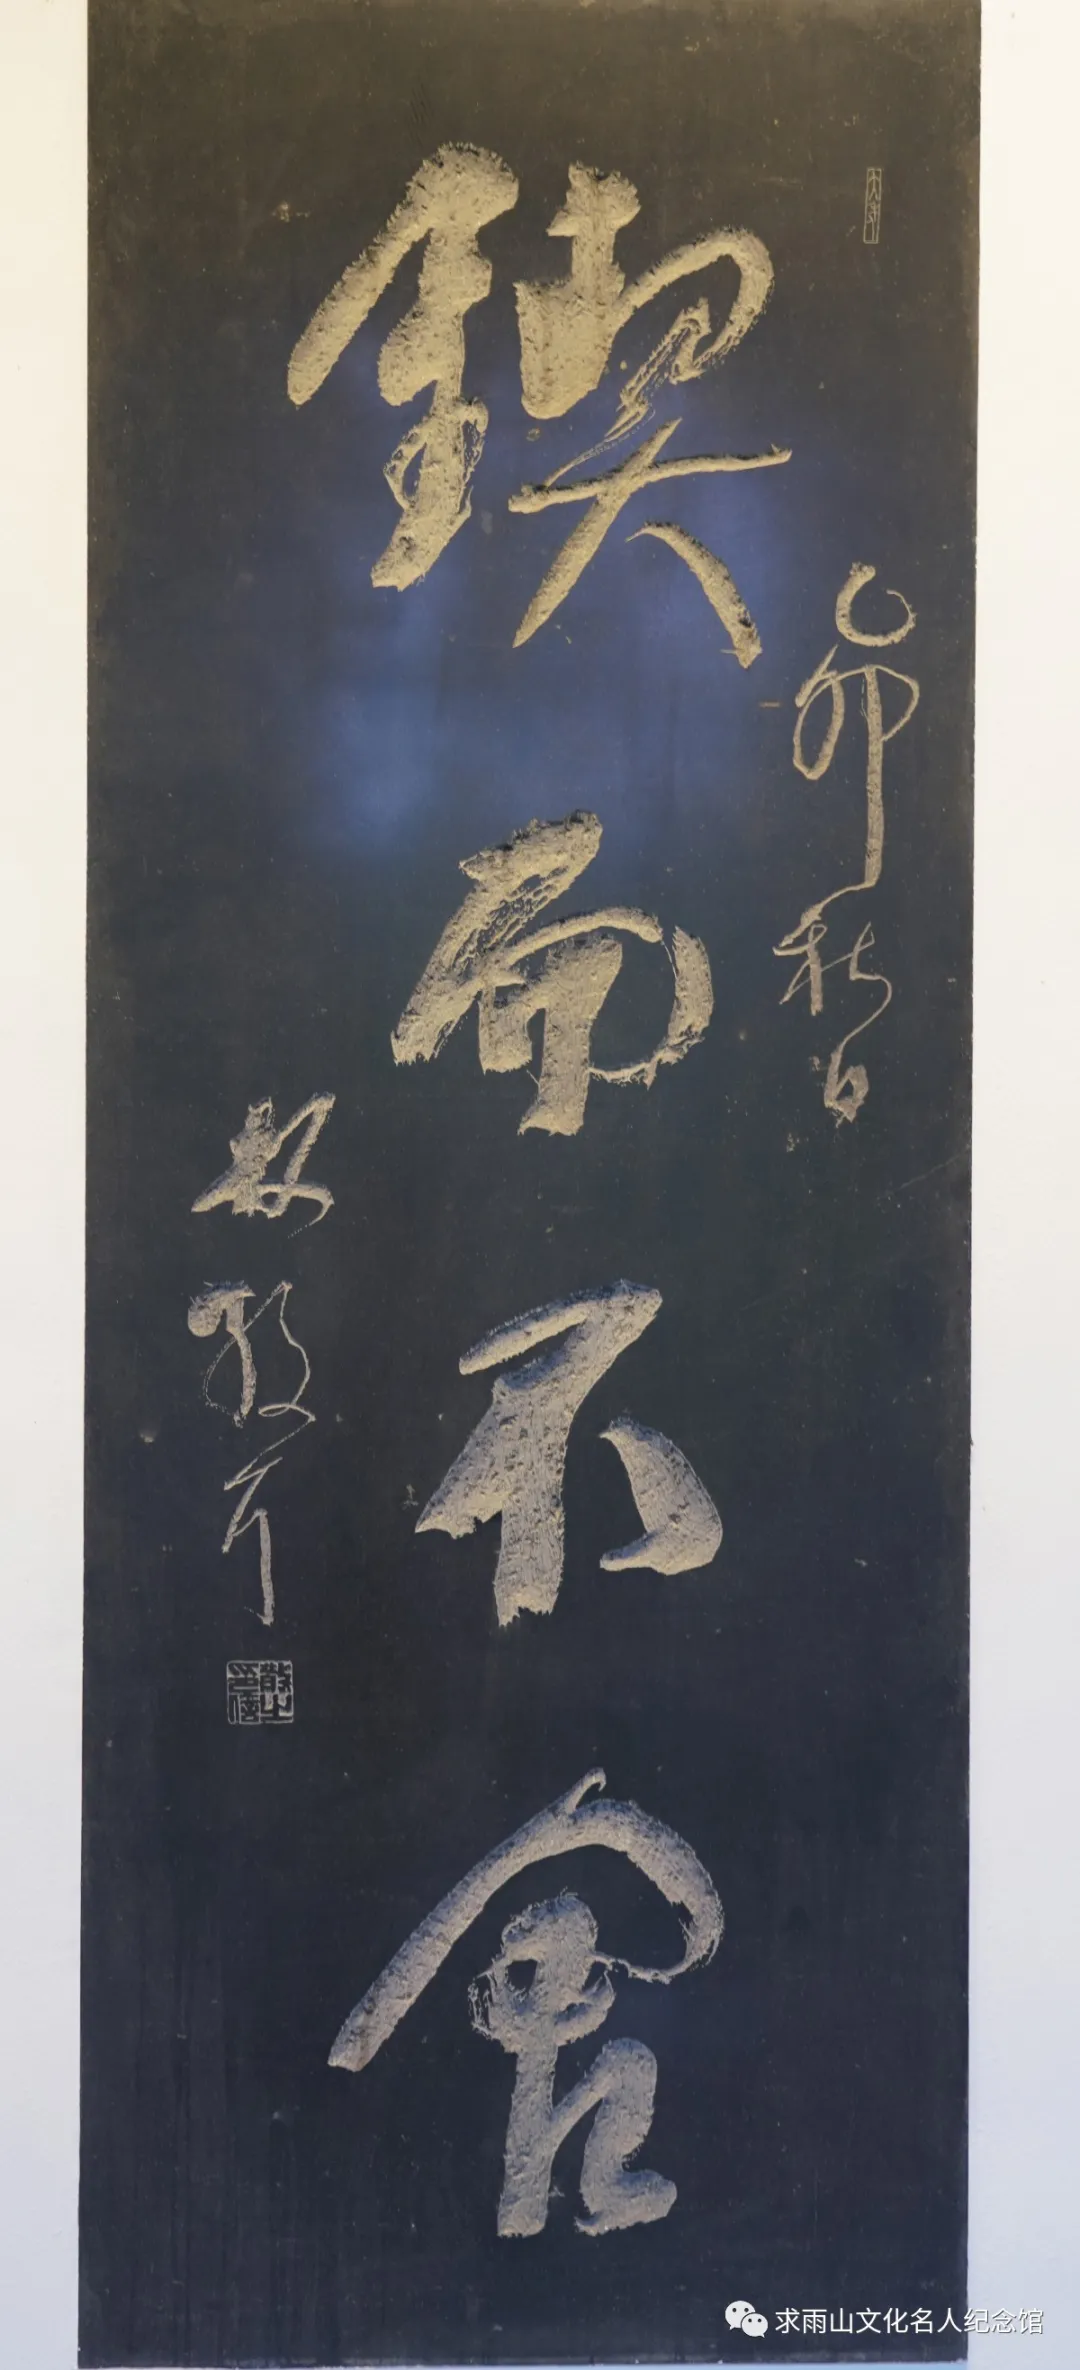 乙卯秋日
鍥而不舍
林散耳
求雨山文化名人纪念馆